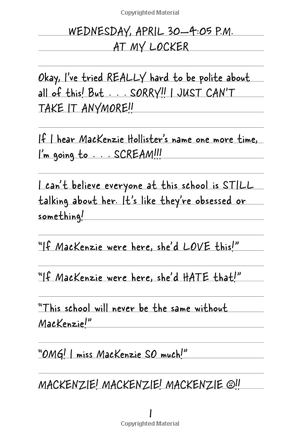 Copyrighted Material
WEDNESDAY, APRIL 30—4:05 P.M.
AT MY LOCKER
Okay, I've tried REALLY hard to be polite about
all of this! But . . . SORRY!! I JUST CAN'T
TAKE IT ANYMORE!!
If I hear MacKenzie Hollister's name one more time,
I'm going to . . . SCREAM!!!
I can't believe everyone at this school is STILL
talking about her. It's like they're obsessed or
something!
"If MacKenzie were here, she'd LOVE this!"
"If MacKenzie were here, she'd HATE that!"
"This school will never be the same without
MacKenzie!"
"OMG! I miss MacKenzie SO much!"
MACKENZIE! MACKENZIE! MACKENZIE ☹!!
1
Copyrighted Material